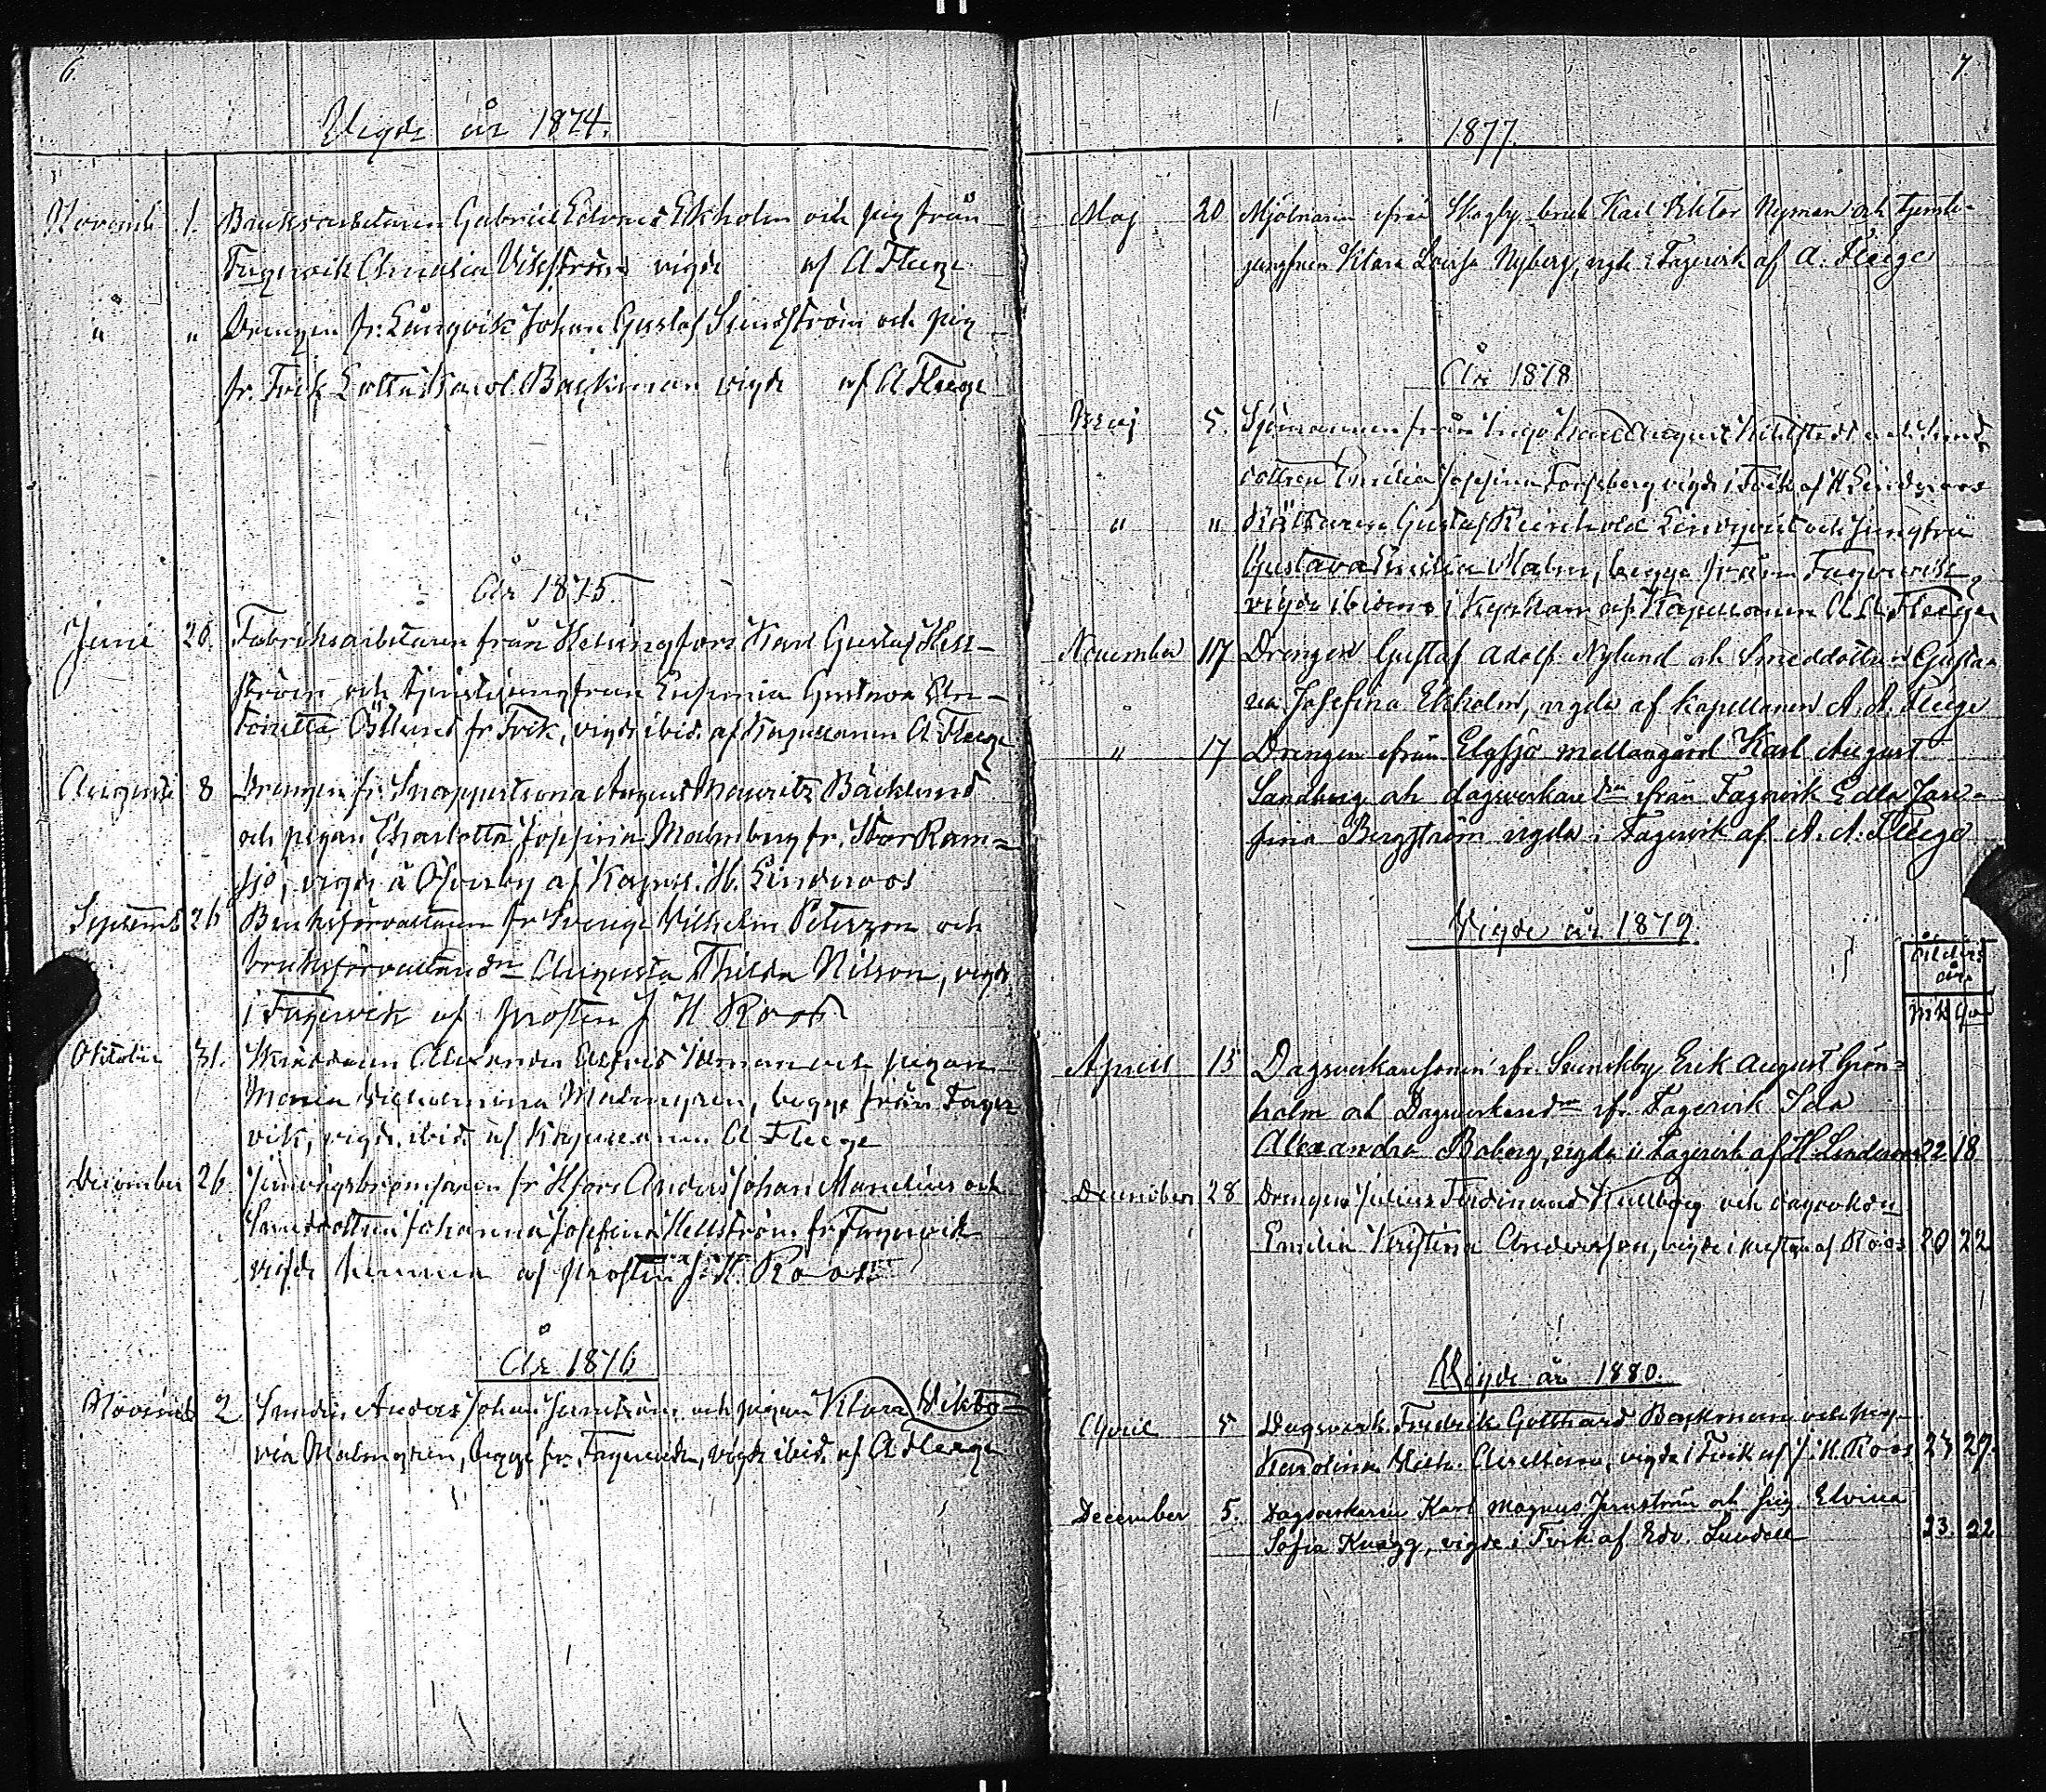 6.
Vigde år 1874.
Novemb 1. Bruksarbetaren Gabriel Edvard Ekholm och pig från
Fagervik Amalia Vikström vigde af A Fleege
" " Drengen fr. Långvik Johan Gustaf Sundström och pig
fr. Fvik Lotta Karol. Backman vigde af A Fleege
År 1875.
Juni 20. Fabriksarbetaren från Helsingfors Karl Gustaf Hell-
ström och tjenstejungfrun Eufemia Gustava An-
tonetta Östlund fr Fvik, vigde ibid. af Kapellanen A Fleege
Augusti 8 Drengen fr. Snappertuna August Mauritz Bäcklund
och pigan Charlotta Josefina Malmberg fr. Stor Ram-
sjö, vigde å Öfverby af H. Linderoos
Septemb 26 Bruksförvaltaren fr Sverige Vilhelm Peterzon och
bruksförvaltared:n Augusta Thilda Nilson, vigde
i Fagervik af prosten J H Roos
Oktober 31. Alexander och pigan
Maria Vilhelmina Malmgren, begge från Fager
vik, vigde ibid. af Kapellanen A Fleege
December 26. fr Hfors Anders Johan och
Smeddottren Johanna Josefina Hellström fr Fagervik
vigde hemma af prosten J. H. Roos
År 1876
Novemb 2 Smeden Anders Johan Jernström och pigan Klara Vikto-
ria Malmgren, begge fr. Fagervik, vigde ibid. af A Fleege
7.
1877.
Maj 20 Mjölnaren ifrån Skogby bruk Karl Viktor Nyman och tjenste-
jungfrun Klara Lovisa Nyberg, vigde i Fagervik af A. Fleege
År 1878
Maj 5. Sjömannen från Ingå Karl August och Smed
dottren Emilia Josefina Forssberg vigde i Fvik af H Linderoos
" " Rättaren Gustaf Reinhold Lindqvist och Jungfru
Gustava Emilia Malm, begge från Fagervik,
vigde ibidem i kyrkan af Kapellanen A. A. Fleege
November 17 Drengen Gustaf Adolf Nylund och Smeddottren Gusta-
va Josefina Ekholm, vigda af Kapellanen A. A. Fleege
" 17 Drengen ifrån Elgsjö mellangård Karl August
Sandberg och dagsverkared:n ifrån Fagervik Edla Jose-
fina Bergström vigda i Fagervik af A. A. Fleege
Vigde år 1879
Ålders
år
Mk Qv
April 13 Dagsverkaresonen ifr. Svenskby Erik August Grön-
holm och Dagsverkared:n ifr. Fagervik Ida
Alexandra Boberg, vigda i Fagervik af H. Linderoos 22 18
December 28 Drengen Julius Ferdinand Kullberg och dagsvkdn
Emilia Kristina Andersson, vigde i af Roos 20 22
Vigde år 1880.
April 5 Dagsverk. Fredrik Gotthard Backman och pig.
Karolina Vilh. vigde i Fvik af J. H. Roos 27.
December 5. Dagsverkaren Karl Magnus Jernström och pig. Elvina
Sofia Knagg, vigde i Fvik af Edv. Lundell 23. 22